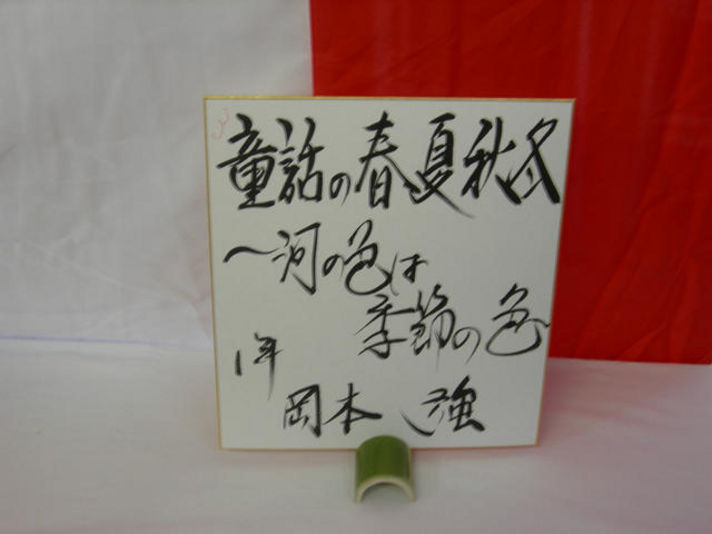 童話の春夏秋冬
〜河の色は
季節の色
1年
岡本 強